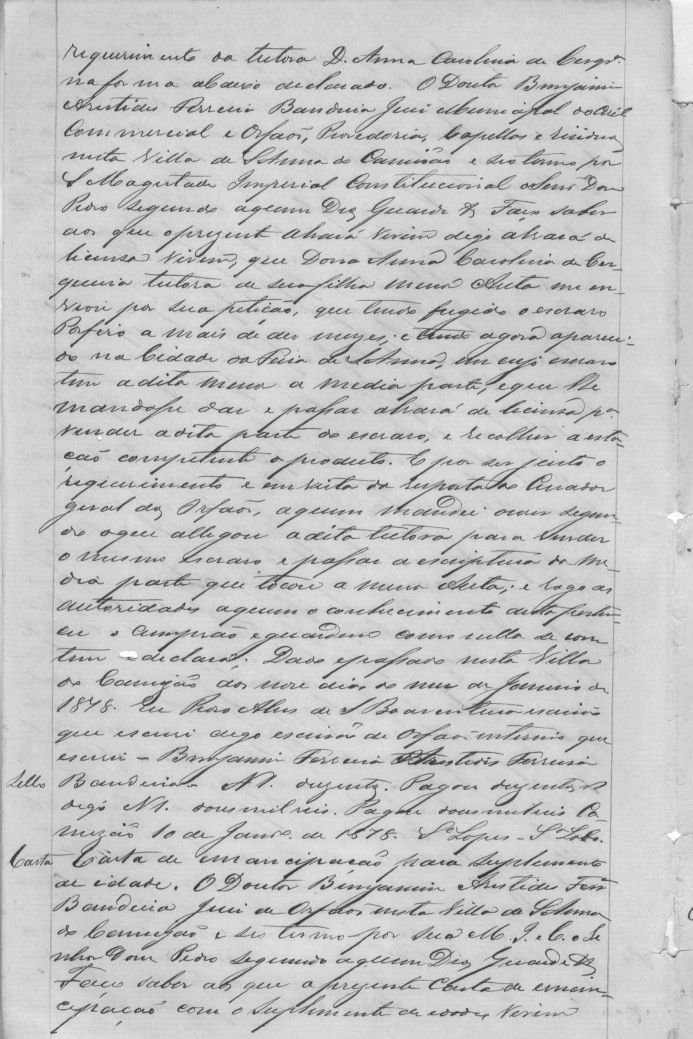 requerimento da tutora D. Anna Carolina de Cerqrª
na forma abaixo declarado. O Doutor Benjamin
Aristides Ferreira Bandeira Juiz Municipal do Civil
Commercial e Orfaõs, Provedoria, Capellas e residuos
nesta Villa de SAnna do Camizaõ e seo termo por
S Magestade Imperial Constitucional oSenr Dom
Pedro segundo aquem Deos Guarde &. Faço saber
aos que opresente alvará virem digo alvará de
licensa virem, que Dona Anna Carolina de Cer-
queira tutora de sua filha menor Auta me en-
viou por sua petiçaõ, que tendo fugido o escravo
Porfirio a mais de des mezes, e agora apareci-
do na Cidade da Feira de SAnna, em cujo escravo
tem adita menor a media parte, eque lhe
mandasse dar e passar alvará de licensa pª
vender adita parte do escravo, e recolher a esta-
çaõ competente o producto. E por ser justo o
requerimento e em vista da resposta do Curador
geral dos Orfaõs, aquem mandei ouvir segun-
do oque allegou adita tutora para vender
o mesmo escravo e passar a escriptura da me-
dia parte que tocou a menor Auta; e rogo as
autoridades aquem o conhecimento desta perten-
cer o cumpraõ eguardem como nella se con-
tem e declara. Dado epassado nesta Villa
do Camizaõ aos nove dias do mez de Janeiro de
1878. Eu Pedro Alves de S Boaventura escrivaõ
que escrevi digo escrivaõ de Orfaõs interino que
escrevi – Benjamin Ferreira Aristides Ferreira
Sello Bandeira. N1. duzentos. Pagou duzentos rs
digo N1. dousmil reis. Pagou dousmilreis Ca-
mizaõ 10 de Janrº. de 1878. Sª Lopes – Sª Lobo.
Carta Carta de emancipaçaõ para suplemento
de idade. O Doutor Benjamin Aristides Ferrª
Bandeira Juiz de Orfaõs nesta Villa de SAnna
do Camizaõ e seo termo por Sua M. I. e C. o Se-
nhor Dom Pedro segundo aquem Deos Guarde &.
Faço saber aos que a prezente Carta de eman-
cipaçaõ com o suplimento de idade virem